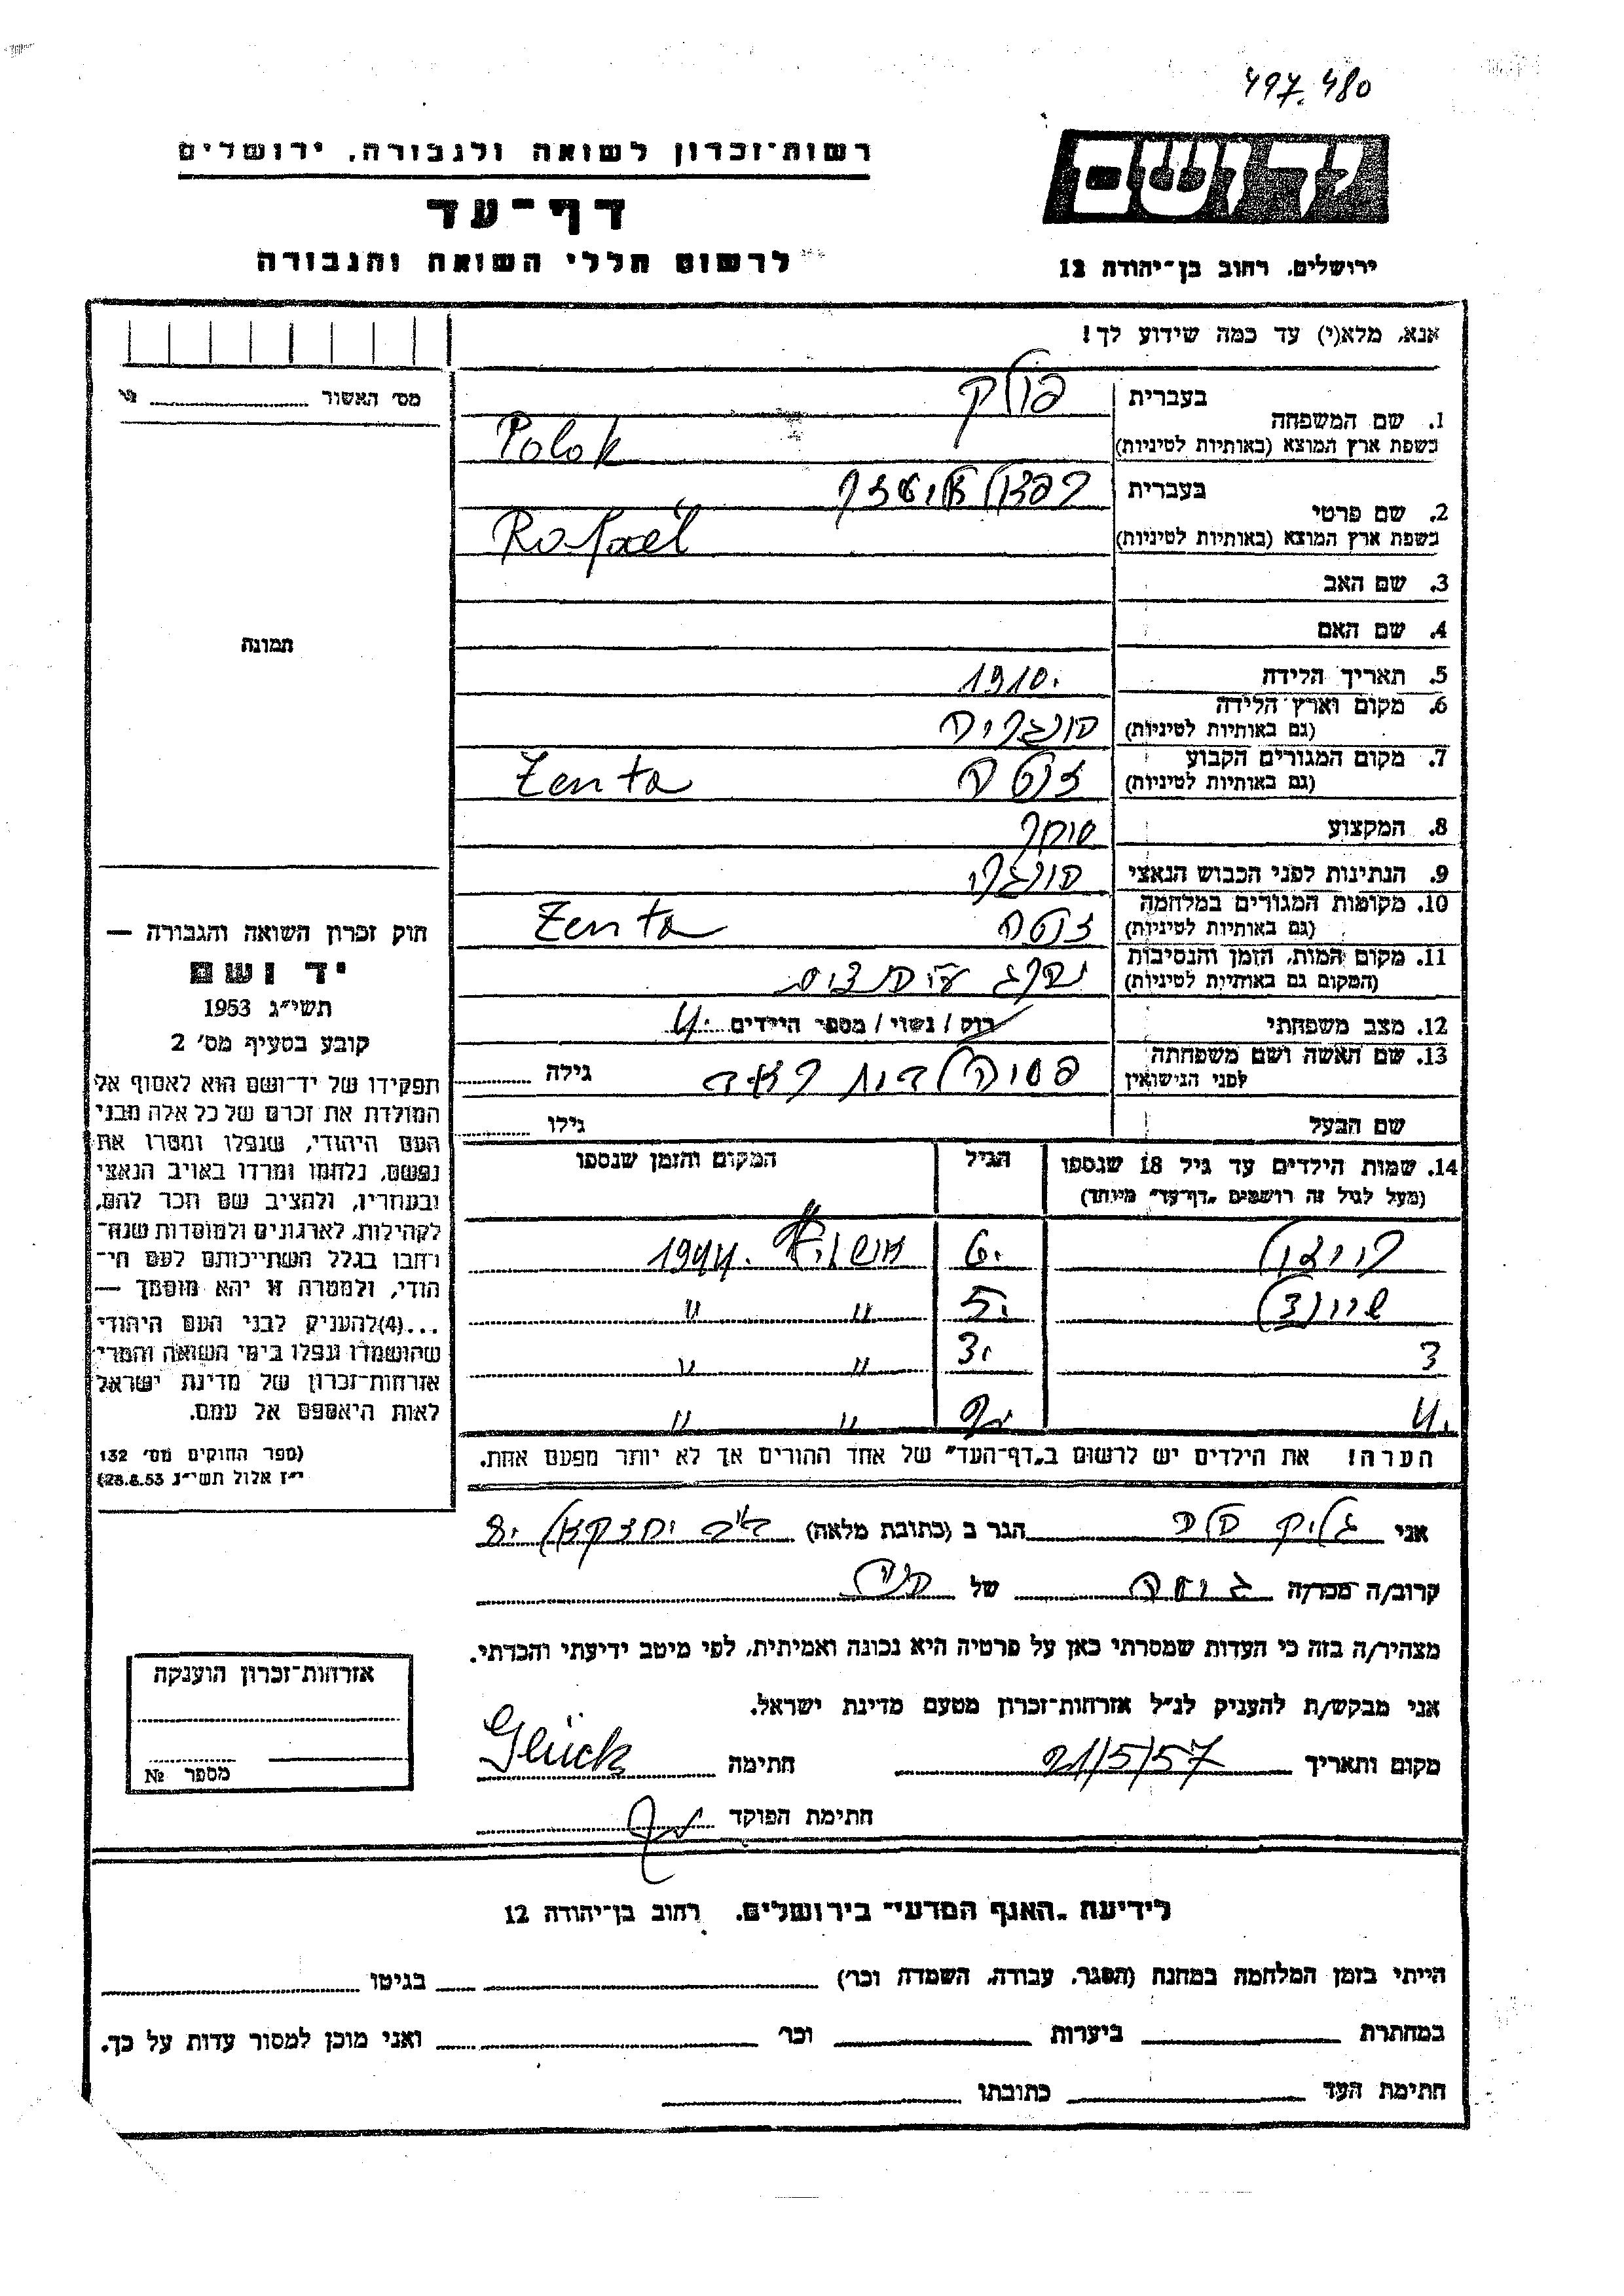 497.480
רשות־זכרון לשואה ולגבורה, ירושלים
דף־עד
לרשום חללי השואה והגבורה
יד ושם
ירושלים, רחוב בן־יהודה 12
אנא, מלא(י) עד כמה שידוע לך!
מס׳ האשור
בעברית פולק
1. שם המשפחה
בשפת ארץ המוצא (באותיות לטיניות) Polok
בעברית רפאל
2. שם פרטי
בשפת ארץ המוצא (באותיות לטיניות) Rafael
3. שם האב
4. שם האם
תמונה
5. תאריך הלידה 1910.
6. מקום וארץ הלידה הונגריה
(גם באותיות לטיניות)
7. מקום המגורים הקבוע
(גם באותיות לטיניות) זנטה Zenta
8. המקצוע סוחר
9. הנתינות לפני הכבוש הנאצי הונגרי
10. מקומות המגורים במלחמה
(גם באותיות לטיניות) זנטה Zenta
11. מקום המות, הזמן והנסיבות
(המקום גם באותיות לטיניות)
12. מצב משפחתי רוק / נשוי / מספר הילדים 4.
13. שם האשה ושם משפחתה
לפני הנישואין גילה
שם הבעל גילו
14. שמות הילדים עד גיל 18 שנספו
(מעל לגיל זה רושמים „דף־עד״ מיוחד)
הגיל
המקום והזמן שנספו
6. 1944.
5. " "
3 3. " "
4. 2. " "
הערה! את הילדים יש לרשום ב„דף־העד״ של אחד ההורים אך לא יותר מפעם אחת.
חוק זכרון השואה והגבורה —
יד ושם
תשי״ג 1953
קובע בסעיף מס׳ 2
תפקידו של יד־ושם הוא לאסוף אל
המולדת את זכרם של כל אלה מבני
העם היהודי, שנפלו ומסרו את
נפשם, נלחמו ומרדו באויב הנאצי
ובעוזריו, ולהציב שם וזכר להם,
לקהילות, לארגונים ולמוסדות שנח־
רבו בגלל השתייכותם לעם הי־
הודי, ולמטרה זו יהא מוסמך —
...(4)להעניק לבני העם היהודי
שהושמדו ונפלו בימי השואה והמרי
אזרחות־זכרון של מדינת ישראל
לאות היאספם אל עמם.
(ספר החוקים מס׳ 132
י״ז אלול תשי״ג 28.8.53)
אני גליק הגר ב (כתובת מלאה)
קרוב/ה מכר/ה של
מצהיר/ה בזה כי העדות שמסרתי כאן על פרטיה היא נכונה ואמיתית, לפי מיטב ידיעתי והכרתי.
אני מבקש/ת להעניק לנ״ל אזרחות־זכרון מטעם מדינת ישראל.
מקום ותאריך 21/5/57 חתימה Glück
חתימת הפוקד
אזרחות־זכרון הוענקה
מספר №
לידיעת „האגף המדעי״ בירושלים, רחוב בן־יהודה 12
הייתי בזמן המלחמה במחנה (הסגר, עבודה, השמדה וכו׳) בגיטו
במחתרת ביערות וכו׳ ואני מוכן למסור עדות על כך.
חתימת העד כתובתו